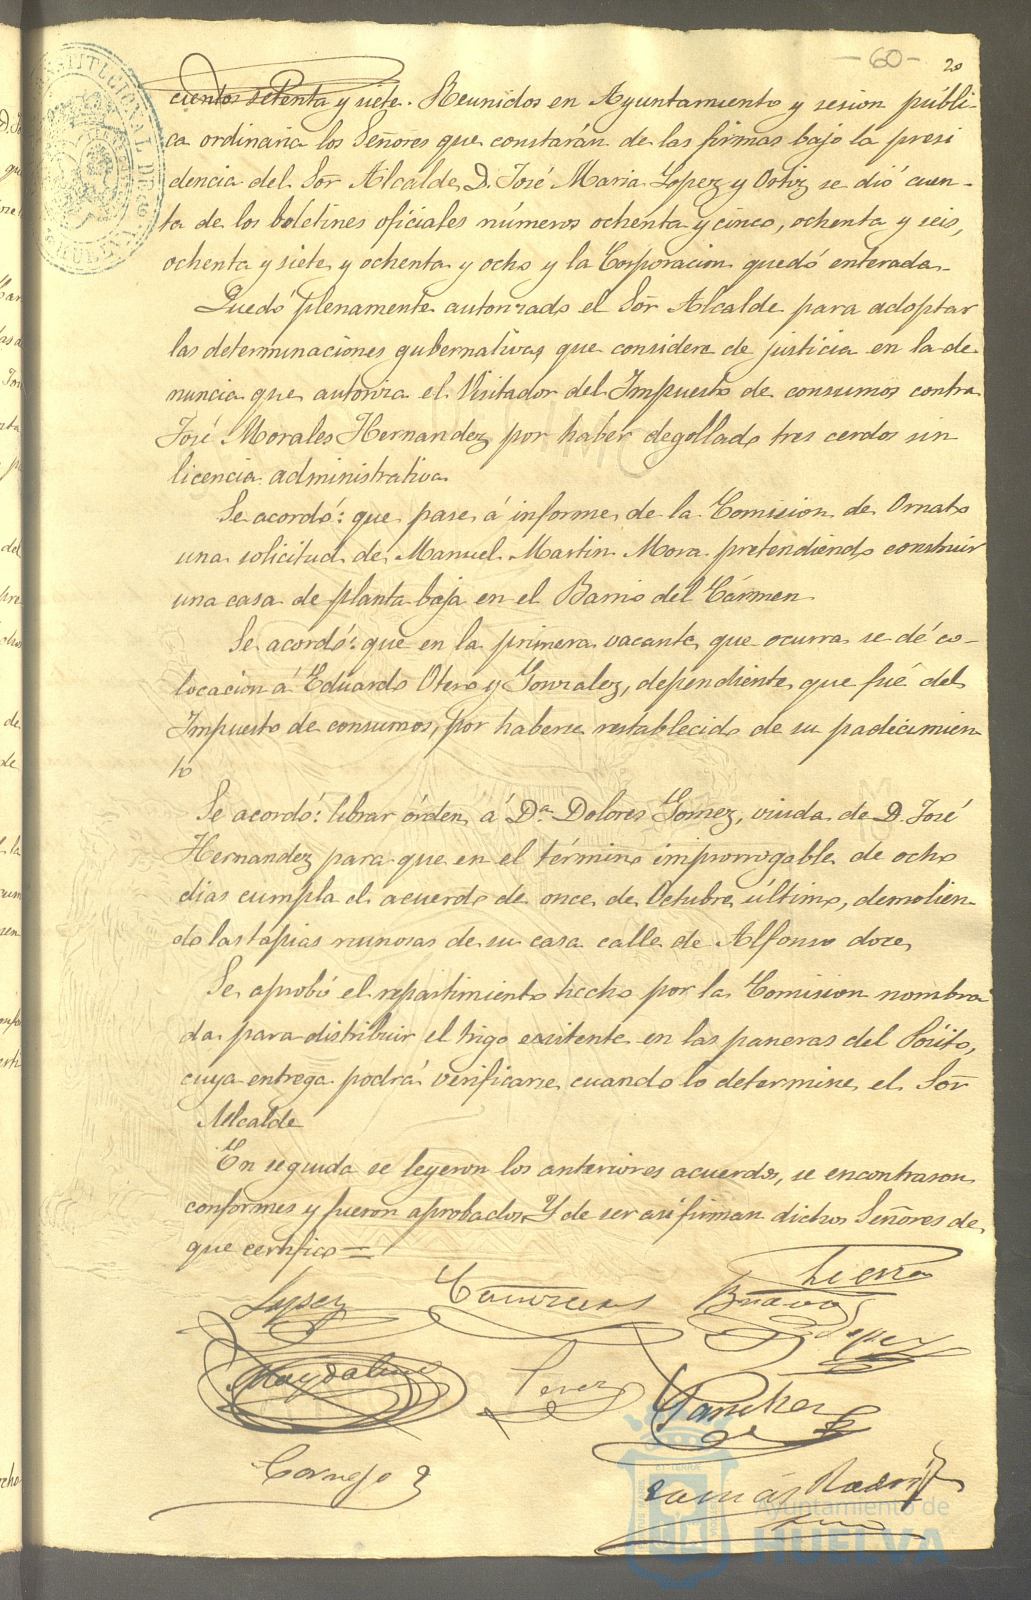 -60- 20
cientos setenta y siete. Reunidos en Ayuntamiento y sesion públi-
ca ordinaria los Señores que constarán de las firmas bajo la presi
dencia del Sor Alcalde D. José Maria Lopez y Ortiz se dió cuen-
ta de los boletines oficiales números ochenta y cinco, ochenta y seis,
ochenta y siete y ochenta y ocho y la Corporacion quedó enterada.-
Quedó plenamente autorizado el Sor Alcalde para adoptar
las determinaciones gubernativas que considere de justicia en la de
nuncia que autoriza el Visitador del Impuesto de consumos contra
José Morales Hernandez por haber degollado tres cerdos sin
licencia administrativa
Se acordó: que pase á informe de la Comision de Ornato
una solicitud de Manuel Martin Mora pretendiendo construir
una casa de planta baja en el Barrio del Cármen
Se acordó: que en la primera vacante que ocurra se dé co-
locacion á Eduardo Otero y Gonzalez, dependiente que fué del
Impuesto de consumos, por haberse restablecido de su padecimien
to
Se acordó: librar órden á Da. Dolores Gomez, viuda de D. José
Hernandez para que en el término improrrogable de ocho
dias cumpla el acuerdo de once de Octubre último, demolien
do las tapias ruinosas de su casa calle de Alfonso doce
Se aprobó el repartimiento hecho por la Comision nombra
da para distribuir el trigo existente en las paneras del Pósito,
cuya entrega podrá verificarse cuando lo determine el Sor
Alcalde
En seguida se leyeron los anteriores acuerdos, se encontraron
conformes y fueron aprobados. Y de ser asi firman dichos Señores de
que certifico=
Lopez Contreras Bravo Tierra
Lopez
Magdaleno Perez Sanchez
Cornejo
Tomás
Ayuntamiento de
HUELVA